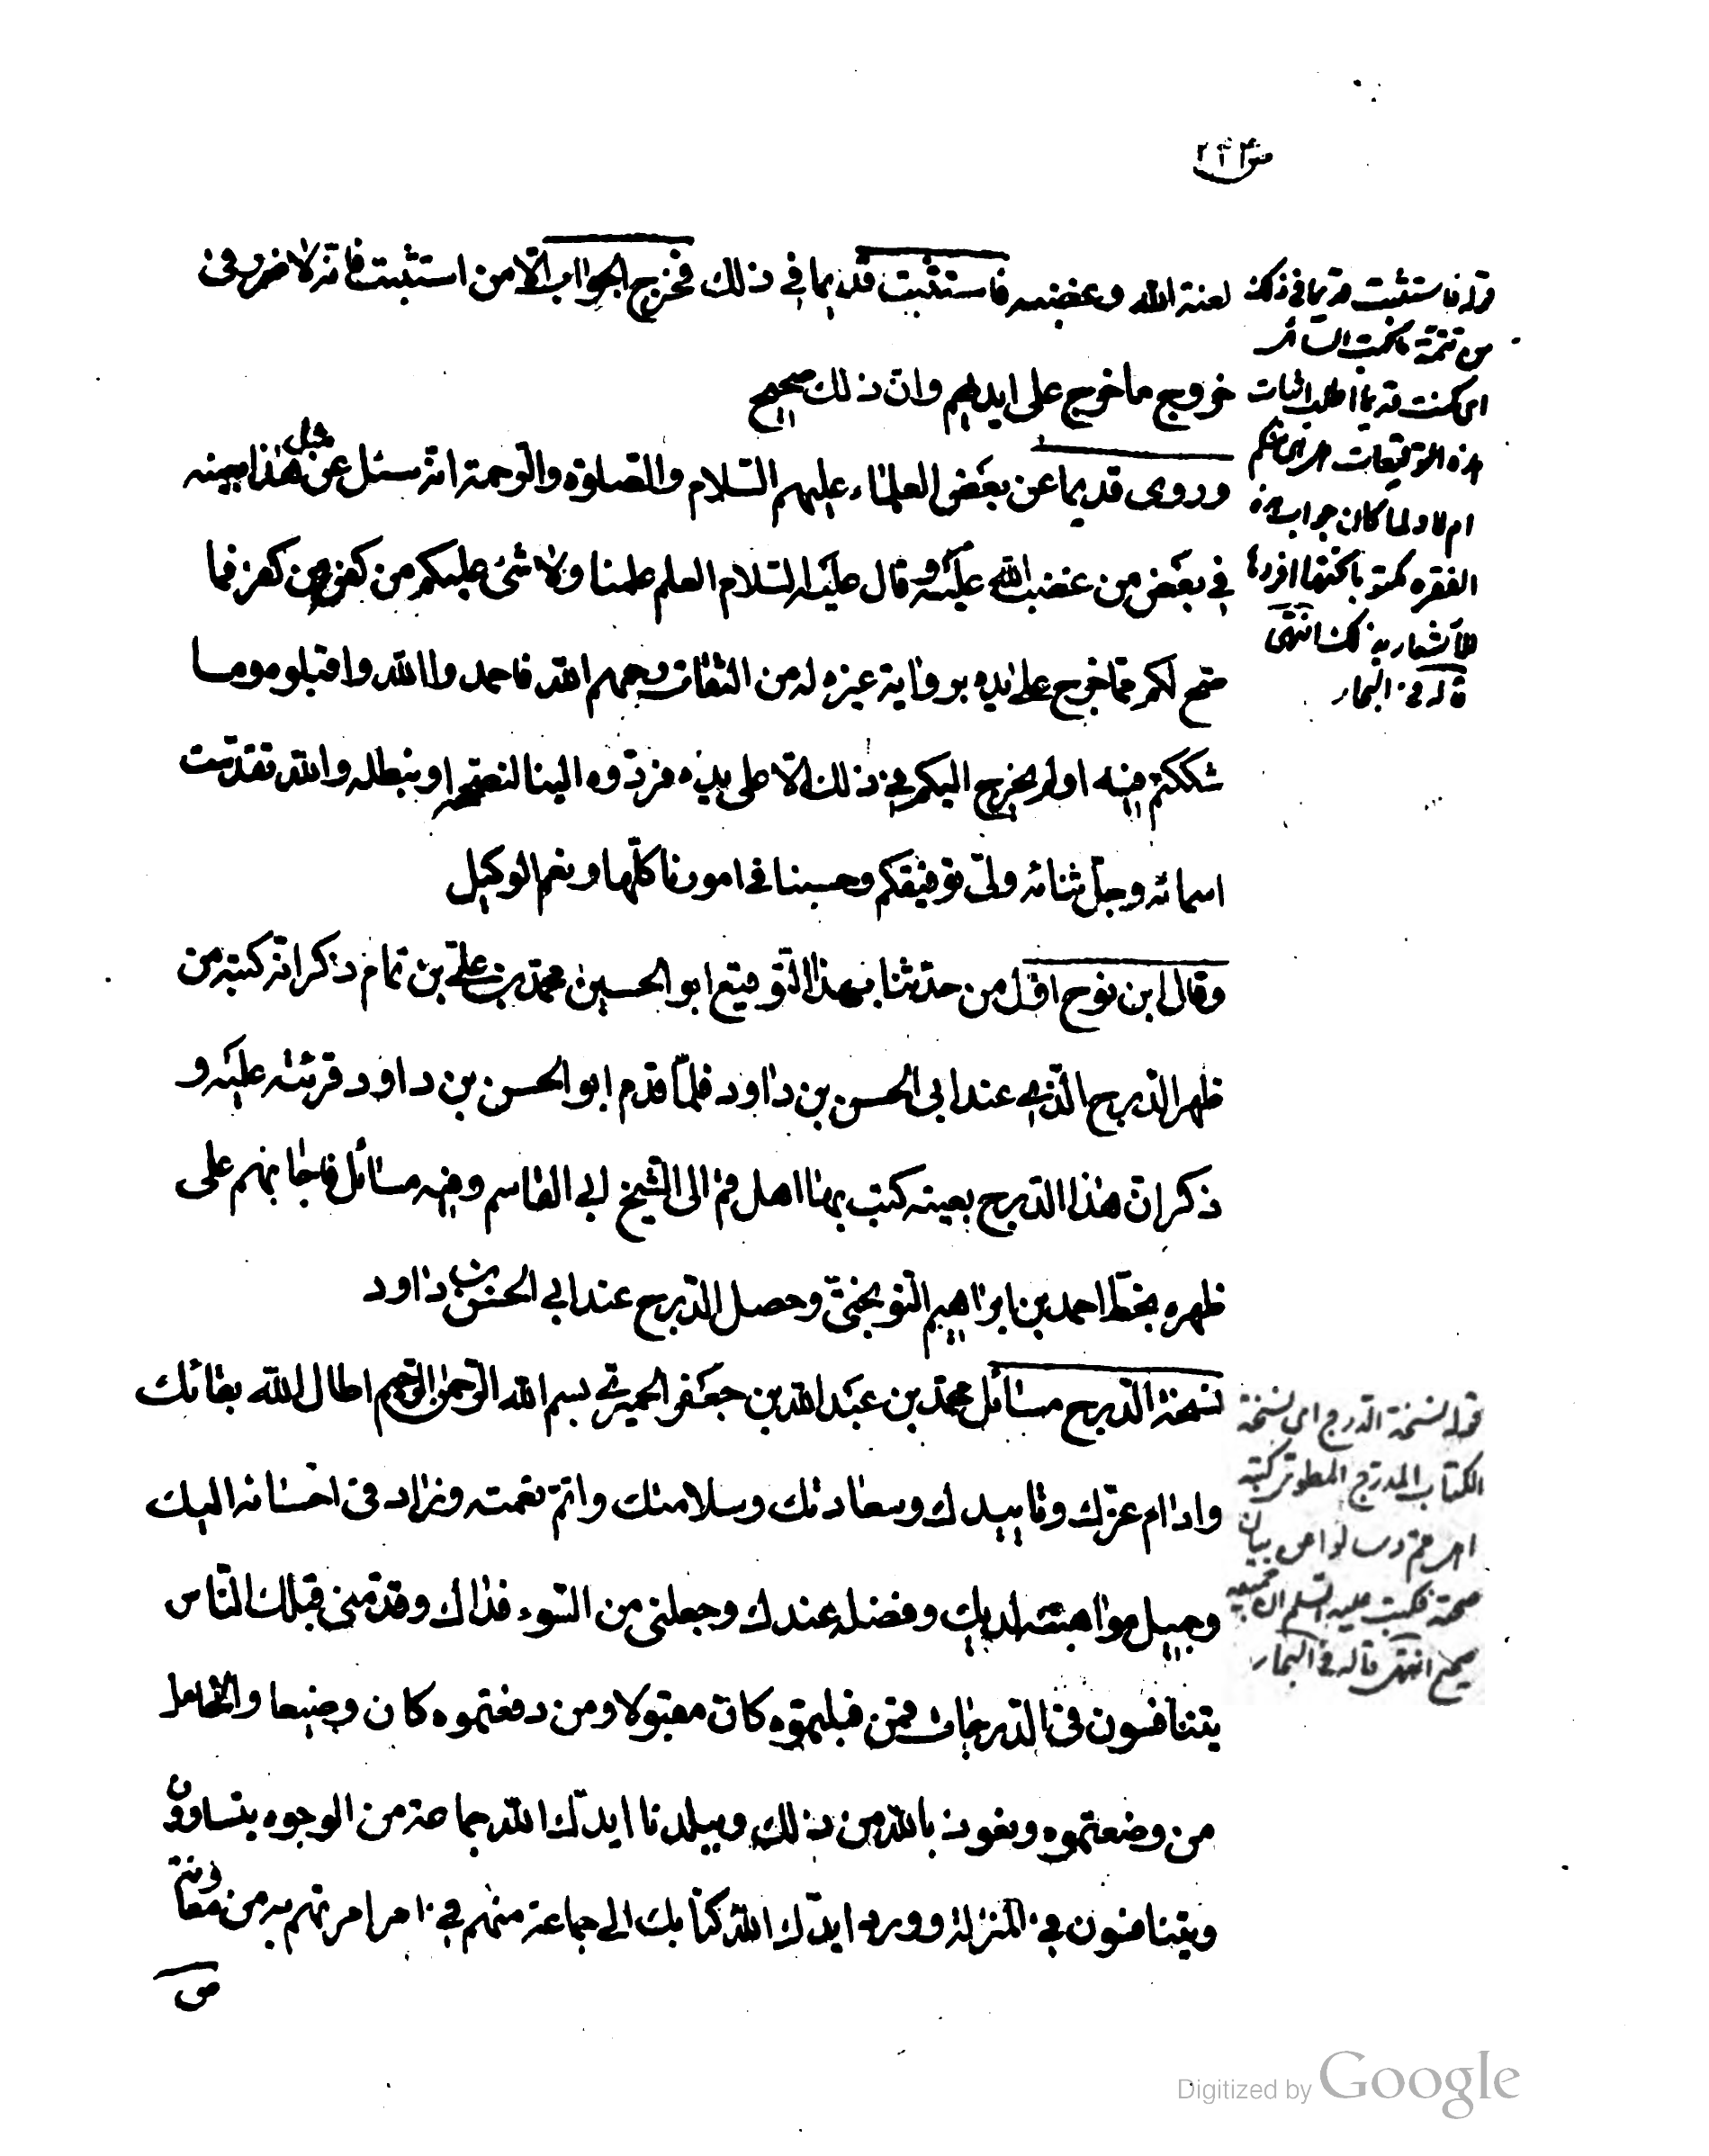 ص ٢٤٣
لعنة الله وغضبه فاستثبت قديما في ذلك فخرج الجواب الا من استثبت فانه لا ضرر في
خروج ما خرج على ايديهم وان ذلك صحيح
وروى قديما عن بعض العلماء عليهم السلام والصلوة والرحمة انه سئل عن مثل هذا بعينه
في بعض من غضب الله عليه وقال عليه السلام العلم علمنا ولا شئ عليكم من كفر من كفر فما
صح لكم مما خرج على يده برواية غيره له من الثقات رحمهم الله فاحمدوا الله واقبلوه وما
شككتم فيه او لم يخرج اليكم في ذلك الا على يده فردوه الينا لنصححه او نبطله والله تقدست
اسمائه وجل ثنائه ولى توفيقكم وحسبنا في امورنا كلها ونعم الوكيل
وقال ابن نوح اول من حدثنا بهذا التوقيع ابو الحسين محمد بن على بن تمام ذكر انه كتبه من
ظهر الدرج الذى عند ابى الحسن بن داود فلما قدم ابو الحسن بن داود قرئته عليه و
ذكر ان هذا الدرج بعينه كتب بها اهل قم الى الشيخ ابى القاسم وفيه مسائل فاجابهم على
ظهره بخط احمد بن ابراهيم النوبختى وحصل الدرج عند ابى الحسن بن داود
نسخة الدرج مسائل محمد بن عبد الله بن جعفر الحميرى بسم الله الرحمن الرحيم اطال الله بقائك
وادام عزك وتاييدك وسعادتك وسلامتك واتم نعمته وزاد في احسانه اليك
وجميل مواهبه لديك وفضله عندك وجعلنى من السوء فداك وقدمنى قبلك الناس
يتنافسون في الدرجات فمن قبلتموه كان مقبولا ومن دفعتموه كان وضيعا والخامل
من وضعتموه ونعوذ بالله من ذلك وببلدنا ايدك الله جماعة من الوجوه يتساوون
ويتنافسون في المنزلة وورد ايدك الله كتابك الى جماعة منهم في امر امرتهم به من معاونة
ص
قوله فاستثبت قديما في ذلك
من تتمة ما كتب السائل
اى كنت قديما اطلب اثبات
هذه التوقيعات هل هى منكم
ام لا ولما كان جواب هذه
الفقرة مكتوبا تحتها افردها
للاشعار بذلك انتهى
قاله في البحار
قوله نسخة الدرج اى نسخة
الكتاب المدرج المطوى كتبه
اهل قم وسالوا عن بيان
صحته فكتب عليه السلم ان جميعه
صحيح انتهى قاله في البحار
Digitized by Google